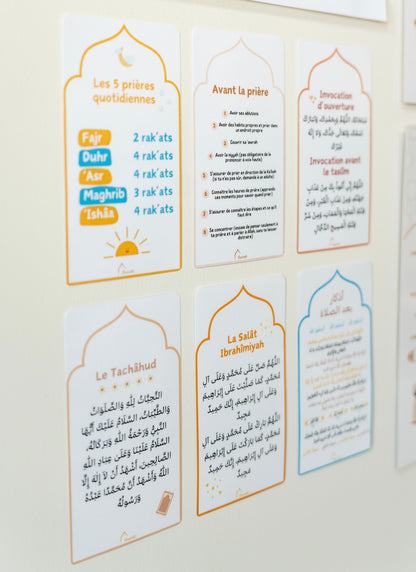 Les 5 prières
quotidiennes
Fajr 2 rak'ats
Duhr 4 rak'ats
'Asr 4 rak'ats
Maghrib 3 rak'ats
'Ishâa 4 rak'ats
Avant la prière
1 Avoir ses ablutions
2 Avoir des habits propres et prier dans
un endroit propre
3 Couvrir sa 'awrah
4 Avoir la niyyah (pas obligatoire de la
prononcer à voix haute)
5 S'assurer de prier en direction de la Ka'bah
(si tu n'es pas sûr, demande à un adulte)
6 Connaître les heures de prière (apprends
ses moments pour savoir quand prier)
7 S'assurer de connaître les étapes et ce qu'il
faut dire
8 Se concentrer (essaie de penser seulement à
ta prière et à parler à Allah, sans te laisser
distraire)
Invocation
d'ouverture
سُبْحَانَكَ اللَّهُمَّ وَبِحَمْدِكَ، وَتَبَارَكَ
اسْمُكَ، وَتَعَالَى جَدُّكَ، وَلَا إِلَهَ
غَيْرُكَ
Invocation avant
le taslîm
اللَّهُمَّ إِنِّي أَعُوذُ بِكَ مِنْ عَذَابِ
جَهَنَّمَ، وَمِنْ عَذَابِ الْقَبْرِ، وَمِنْ
فِتْنَةِ الْمَحْيَا وَالْمَمَاتِ، وَمِنْ شَرِّ
فِتْنَةِ الْمَسِيحِ الدَّجَّالِ
Le Tachâhud
التَّحِيَّاتُ لِلَّهِ وَالصَّلَوَاتُ
وَالطَّيِّبَاتُ، السَّلَامُ عَلَيْكَ أَيُّهَا
النَّبِيُّ وَرَحْمَةُ اللَّهِ وَبَرَكَاتُهُ،
السَّلَامُ عَلَيْنَا وَعَلَى عِبَادِ اللَّهِ
الصَّالِحِينَ، أَشْهَدُ أَنْ لَا إِلَهَ إِلَّا
اللَّهُ وَأَشْهَدُ أَنَّ مُحَمَّدًا عَبْدُهُ
وَرَسُولُهُ
La Salât
Ibrahîmiyah
اللَّهُمَّ صَلِّ عَلَى مُحَمَّدٍ وَعَلَى آلِ
مُحَمَّدٍ، كَمَا صَلَّيْتَ عَلَى إِبْرَاهِيمَ
وَعَلَى آلِ إِبْرَاهِيمَ، إِنَّكَ حَمِيدٌ
مَجِيدٌ
اللَّهُمَّ بَارِكْ عَلَى مُحَمَّدٍ وَعَلَى آلِ
مُحَمَّدٍ، كَمَا بَارَكْتَ عَلَى إِبْرَاهِيمَ
وَعَلَى آلِ إِبْرَاهِيمَ، إِنَّكَ حَمِيدٌ
مَجِيدٌ
أذكار
بعد الصلاة